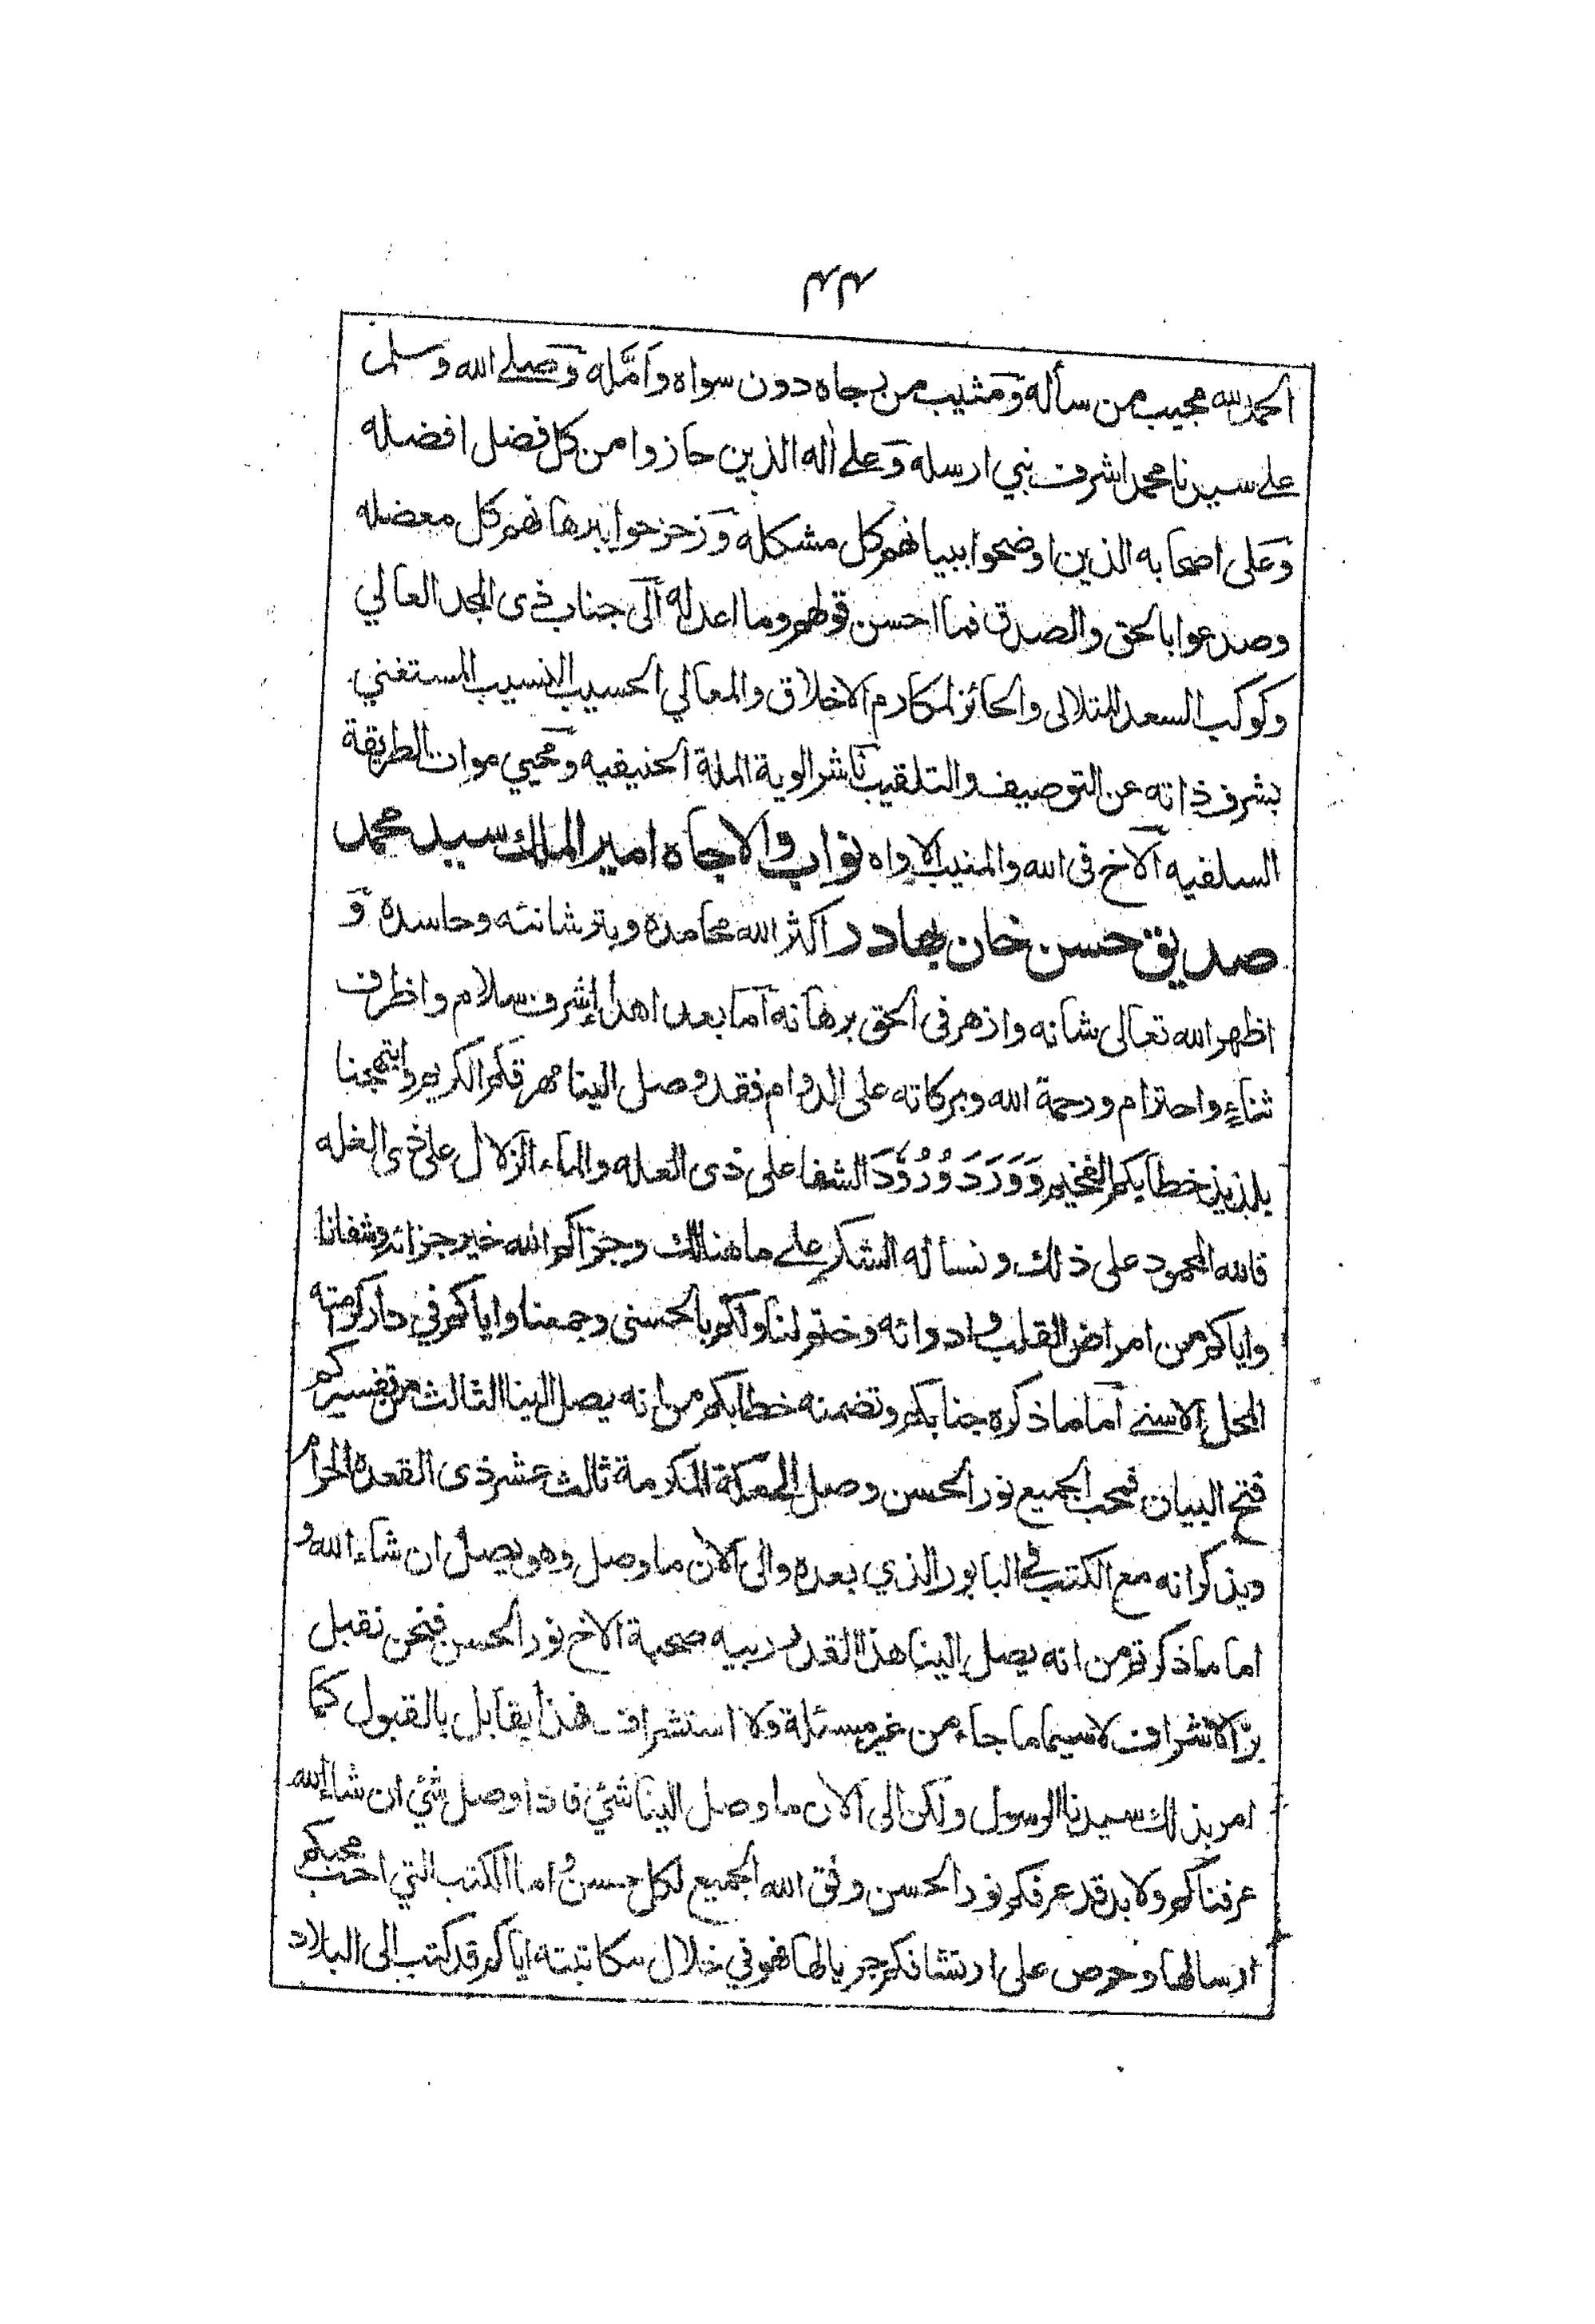 ۴۴
الحمد لله مجيب من سأله وَمثيب من رجاه دون سواه واَمَّله وَصلے الله وسلم
علے سيدنا محمد اشرف نبي ارسله وَعلے اٰله الذين حازوا من كل فضل افضله
وَعلى اصحابه الذين اوضحوا ببيانهم كل مشكله وَزحزحوا ببرهانهم كل معضله
وصدعوا بالحق والصدق فما احسن قولهم وما اعدله اَلى جناب ذى المجد العالي
وكوكب السعد المتلالى والحائز لمكارم الاخلاق والمعالي الحسيب النسيب المستغني
بشرف ذاته عن التوصيف والتلقيب ناشر الوية الملة الحنيفيه وَمحيي موات الطريقة
السلفيه اَلاخ فى الله والمنيب الاواه نواب والاجاه امير الملك سيد محمد
صديق حسن خان بهادر اكثر الله محامده وبتر شانئه وحاسده وَ
اظهر الله تعالى شانه وازهر فى الحق برهانه اَما بعد اهداء اشرف سلام واظرف
ثناءٍ واحترام ورحمة الله وبركاته على الدوام فقد وصل الينا مهرقكم الكريم وابتهجنا
بلذيذ خطابكم الفخيم وَوَرَدَ وُرُوْدَ الشفا على ذى العله والماء الزلال على ذى الغله
فالله المحمود على ذلك ونسأله الشكر علے ما هنالك وجزاكم الله خير جزائه وشفانا
واياكم من امراض القلب وادوائه وختم لنا ولكم بالحسنى وجمعنا واياكم في دار كرامته
المحل الاسنے اَما ما ذكره جنابكم وتضمنه خطابكم من انه يصل الينا الثالث من تفسيركم
فتح البيان فمحب الجميع نور الحسن وصل الى مكة المكرمة ثالث عشر ذى القعدة الحرام
ويذكر انه مع الكتب في البابور الذي بعده والى الاٰن ما وصل وهو يصل ان شاء الله و
اما ما ذكرتم من انه يصل الينا هذا القدر ربيه صحبة الاخ نور الحسن فنحن نقبل
برّ الاشراف لاسيما ما جاء من غير مسئلة ولا استشراف فهذا يقابل بالقبول كما
امر بذلك سيدنا الرسول ولكن الى الاٰن ما وصل الينا شئ فاذا وصل شئ ان شاء الله
عرفناكم ولابد قد عرفكم نور الحسن وفق الله الجميع لكل حسن و اما الكتب التي احب محبكم
ارسالها وحرص على ارتشافكم جريالها فهو في خلال مكاتبته اياكم قد كتب الى البلاد